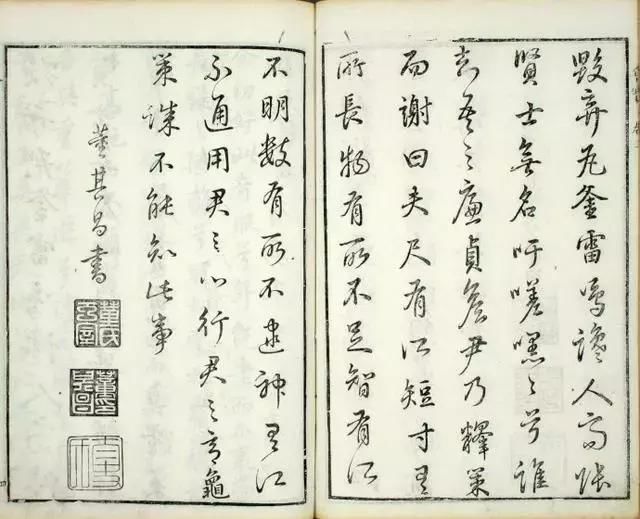 毀弃瓦釜雷鳴讒人高張
賢士無名吁嗟嘿〻兮誰
知吾之廉貞詹尹乃釋策
而謝曰夫尺有所短寸有
所長物有所不足智有所
不明數有所不逮神有所
不通用君之心行君之意龜
策誠不能知此事
董其昌書
董氏玄宰